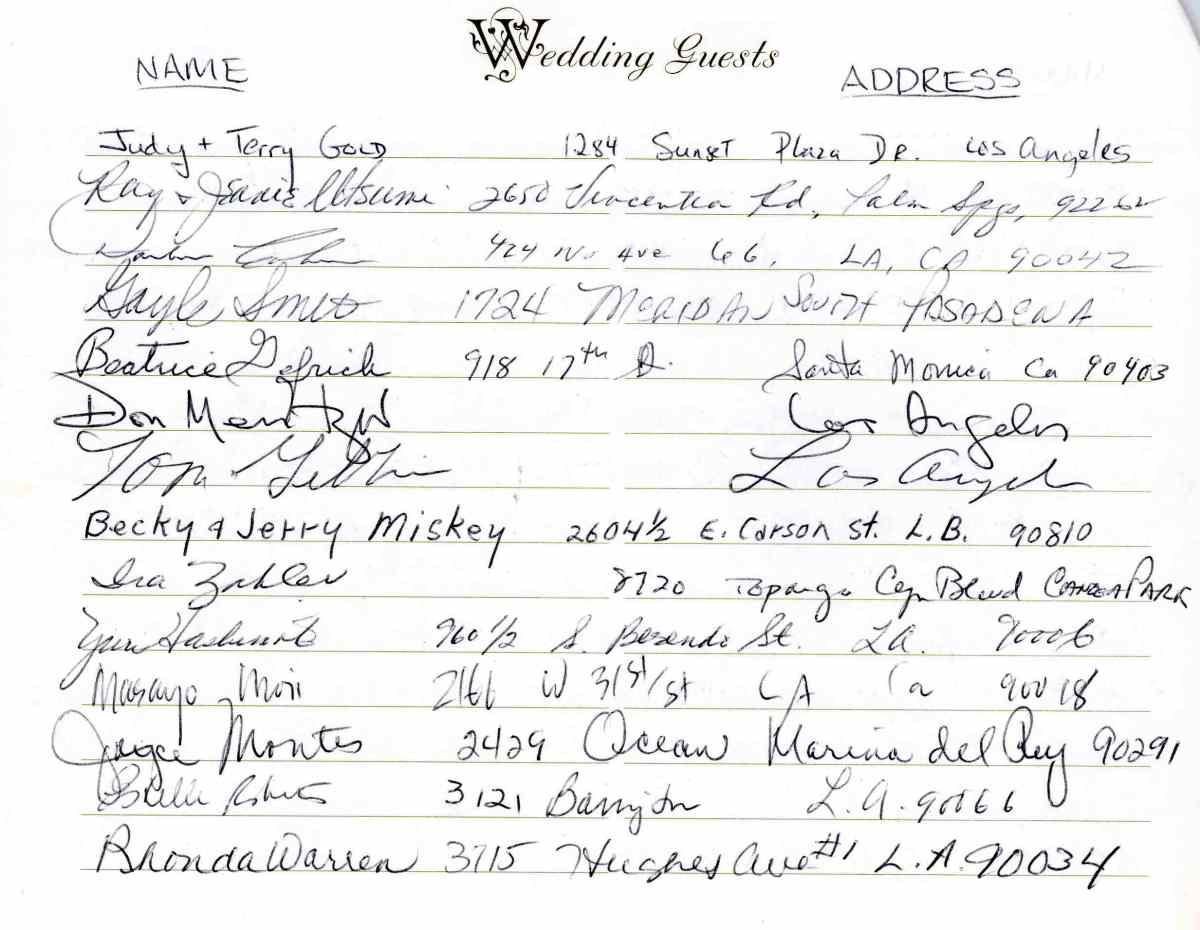 Wedding Guests
NAME ADDRESS
Judy + Terry GOLD 1284 Sunset Plaza Dr. Los Angeles
Ray & Janie Utsumi 2650 Vincentia Rd, Palm Spgs, 92262
424 No Ave 66, LA, CA 90042
Gayle 1724 MERIDIAN SOUTH PASADENA
Beatrice 918 17th St. Santa Monica Ca 90403
Don Los Angeles
Tom Los Angeles
Becky & Jerry Miskey 2604 1/2 E. Carson St. L.B. 90810
Ira Zahler 8720 Topanga Cyn Blvd CANOGA PARK
Yuri Hashimoto 960 1/2 S. Berendo St. LA. 90006
Masayo Mori 2166 W 31st/st LA Ca 90018
Joyce Montes 2429 Ocean Marina del Rey 90291
Roberts 3121 Barrington L.A. 90066
Rhonda Warren 3715 Hughes Ave #1 L.A. 90034